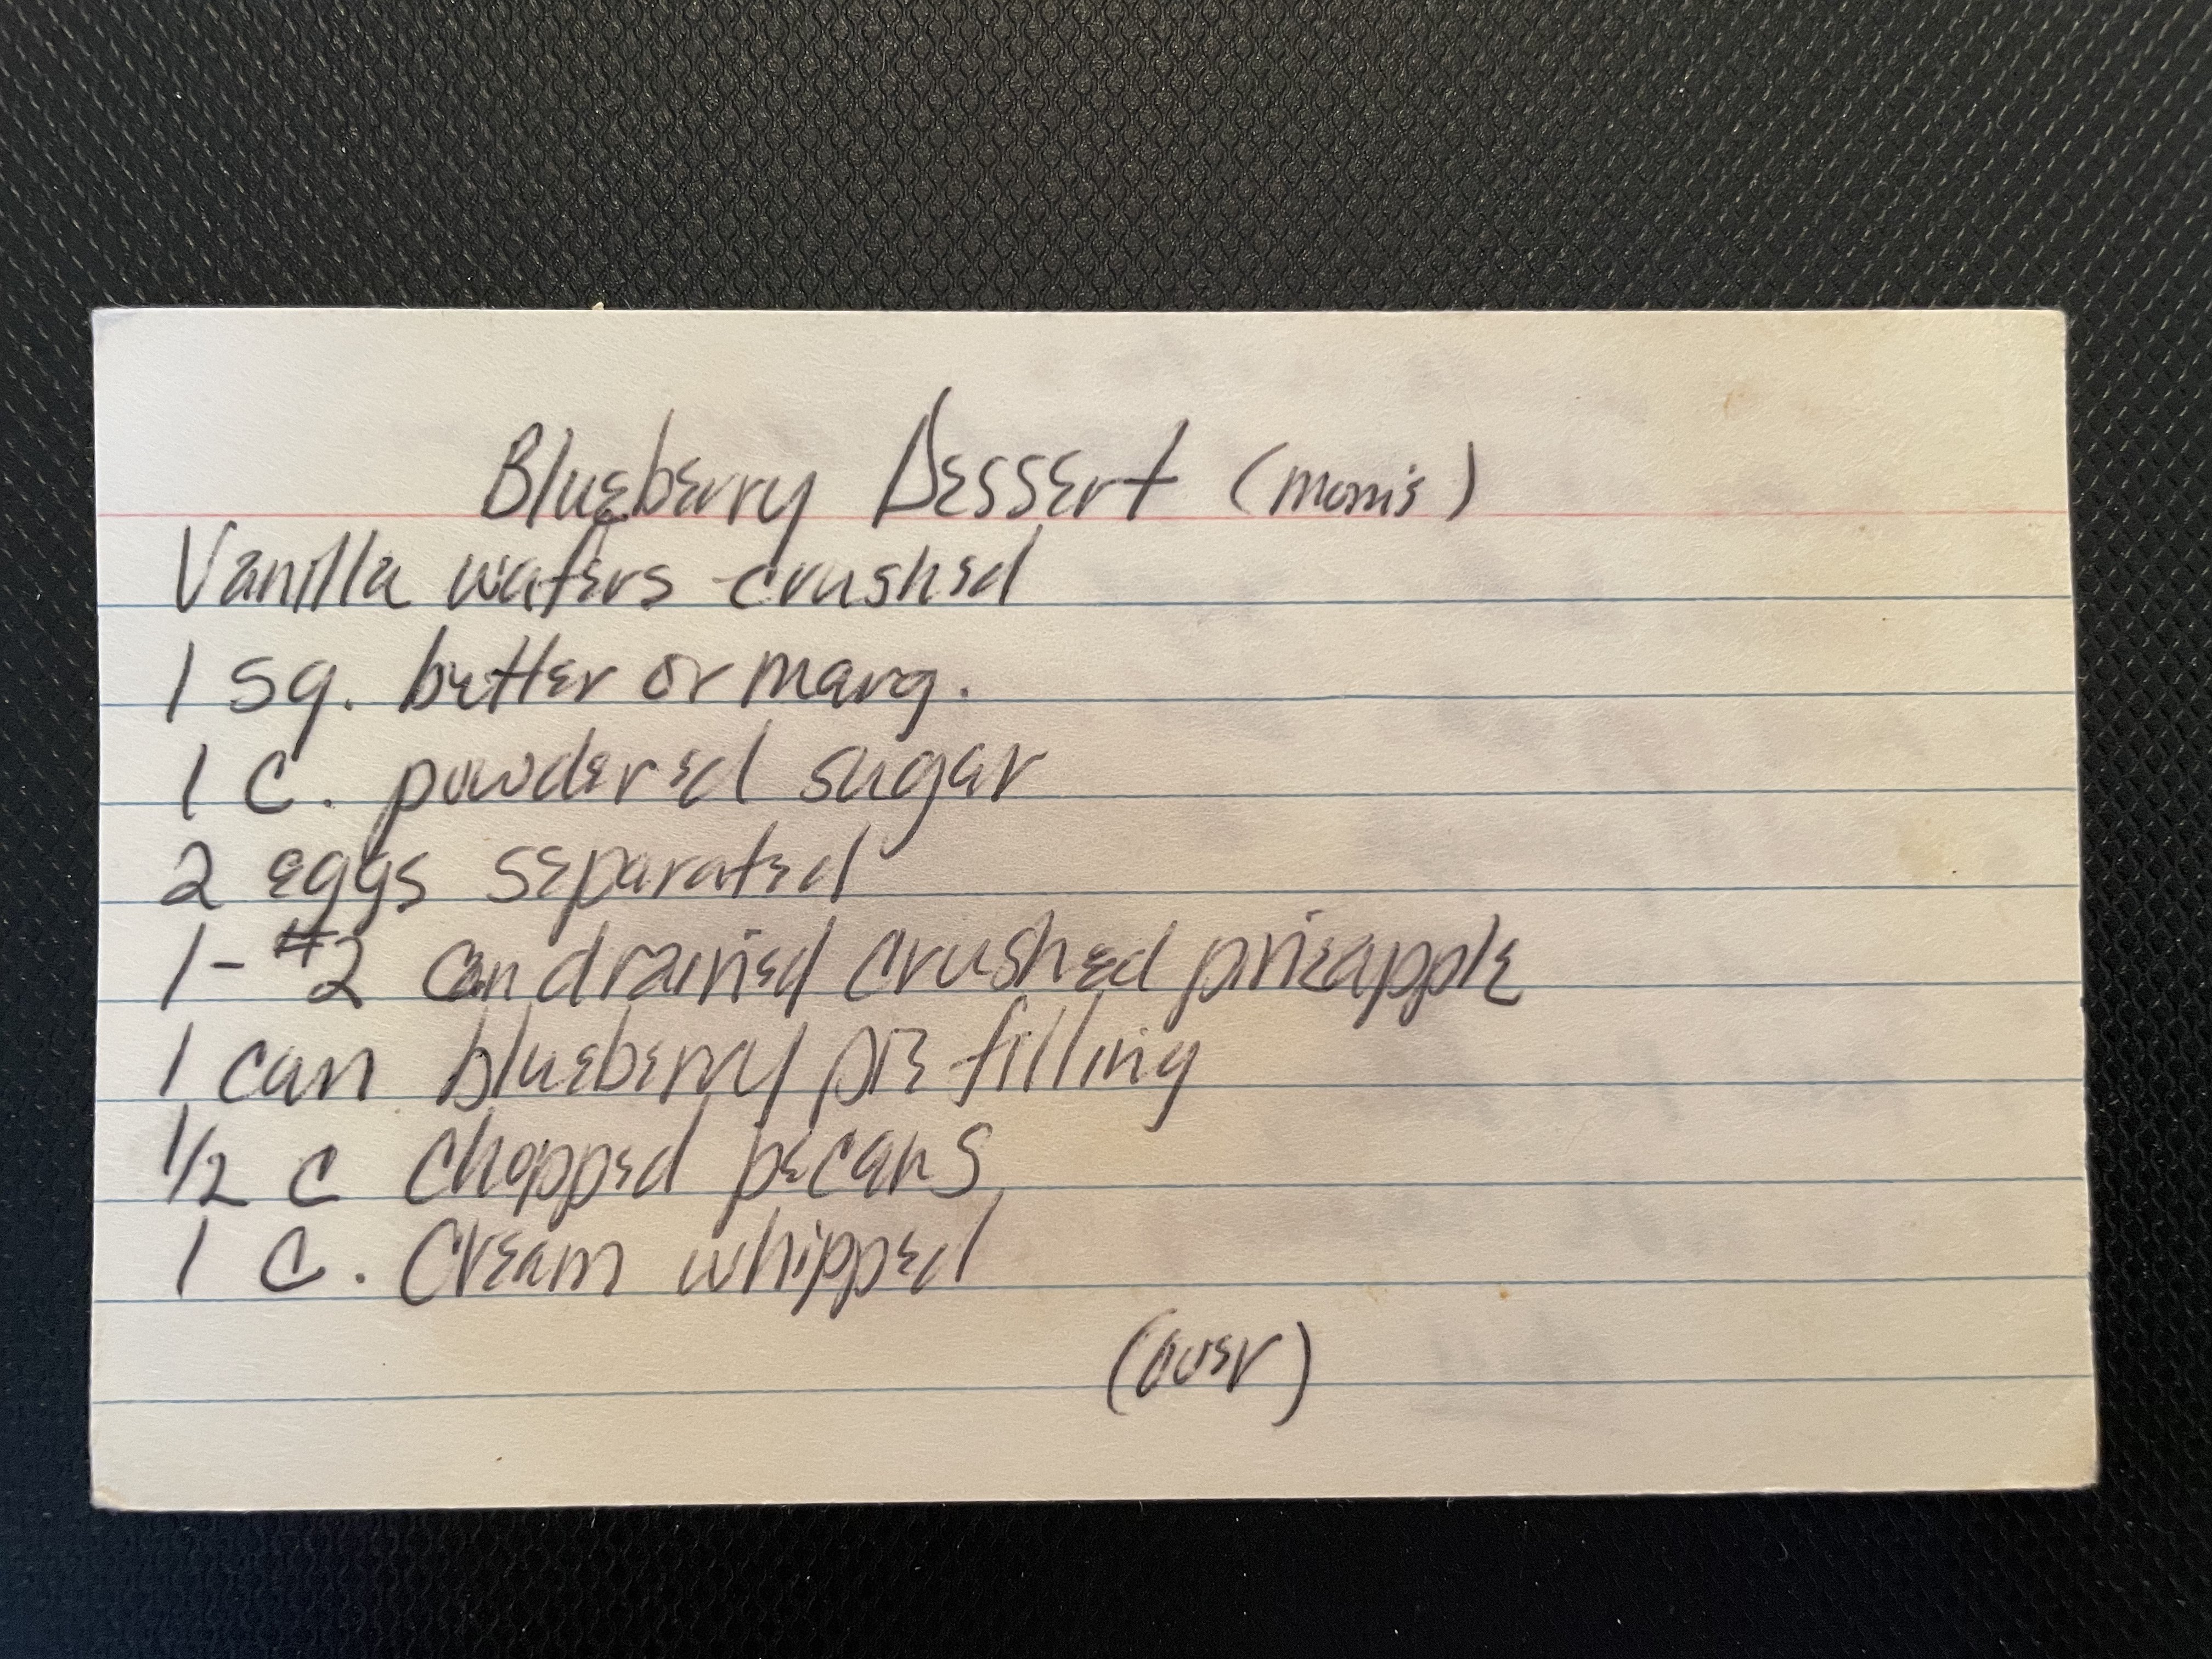 Blueberry Dessert (Mom's)
Vanilla wafers crushed
1 sq. butter or marg.
1 c. powdered sugar
2 eggs separated
1 - #2 can drained crushed pineapple
1 can blueberry pie filling
1/2 c chopped pecans
1 c. cream whipped
(over)